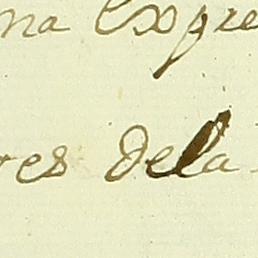 na Expre
res dela